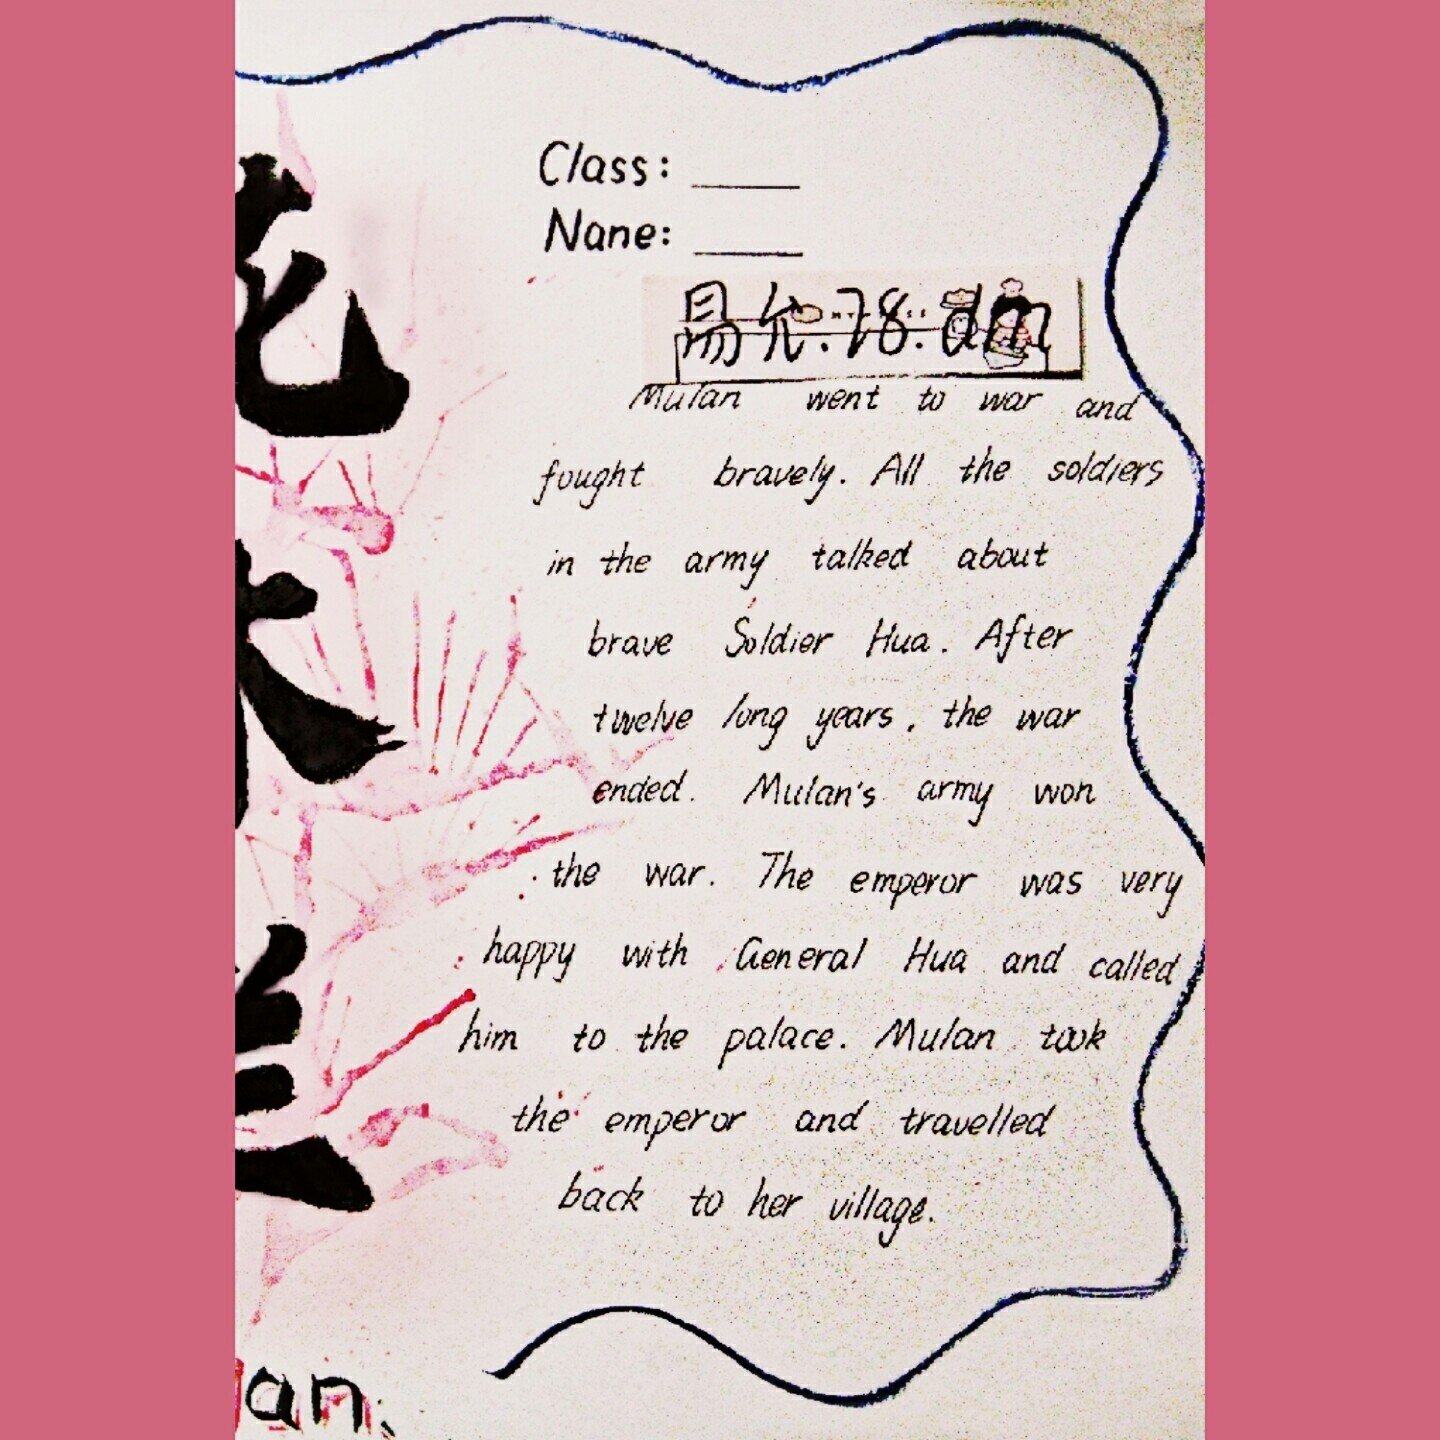 Class: _____
Nane: _____
易允.78.dm
Mulan went to war and
fought bravely. All the soldiers
in the army talked about
brave Soldier Hua. After
twelve long years, the war
ended. Mulan's army won
the war. The emperor was very
happy with General Hua and called
him to the palace. Mulan took
the emperor and travelled
back to her village.
an.